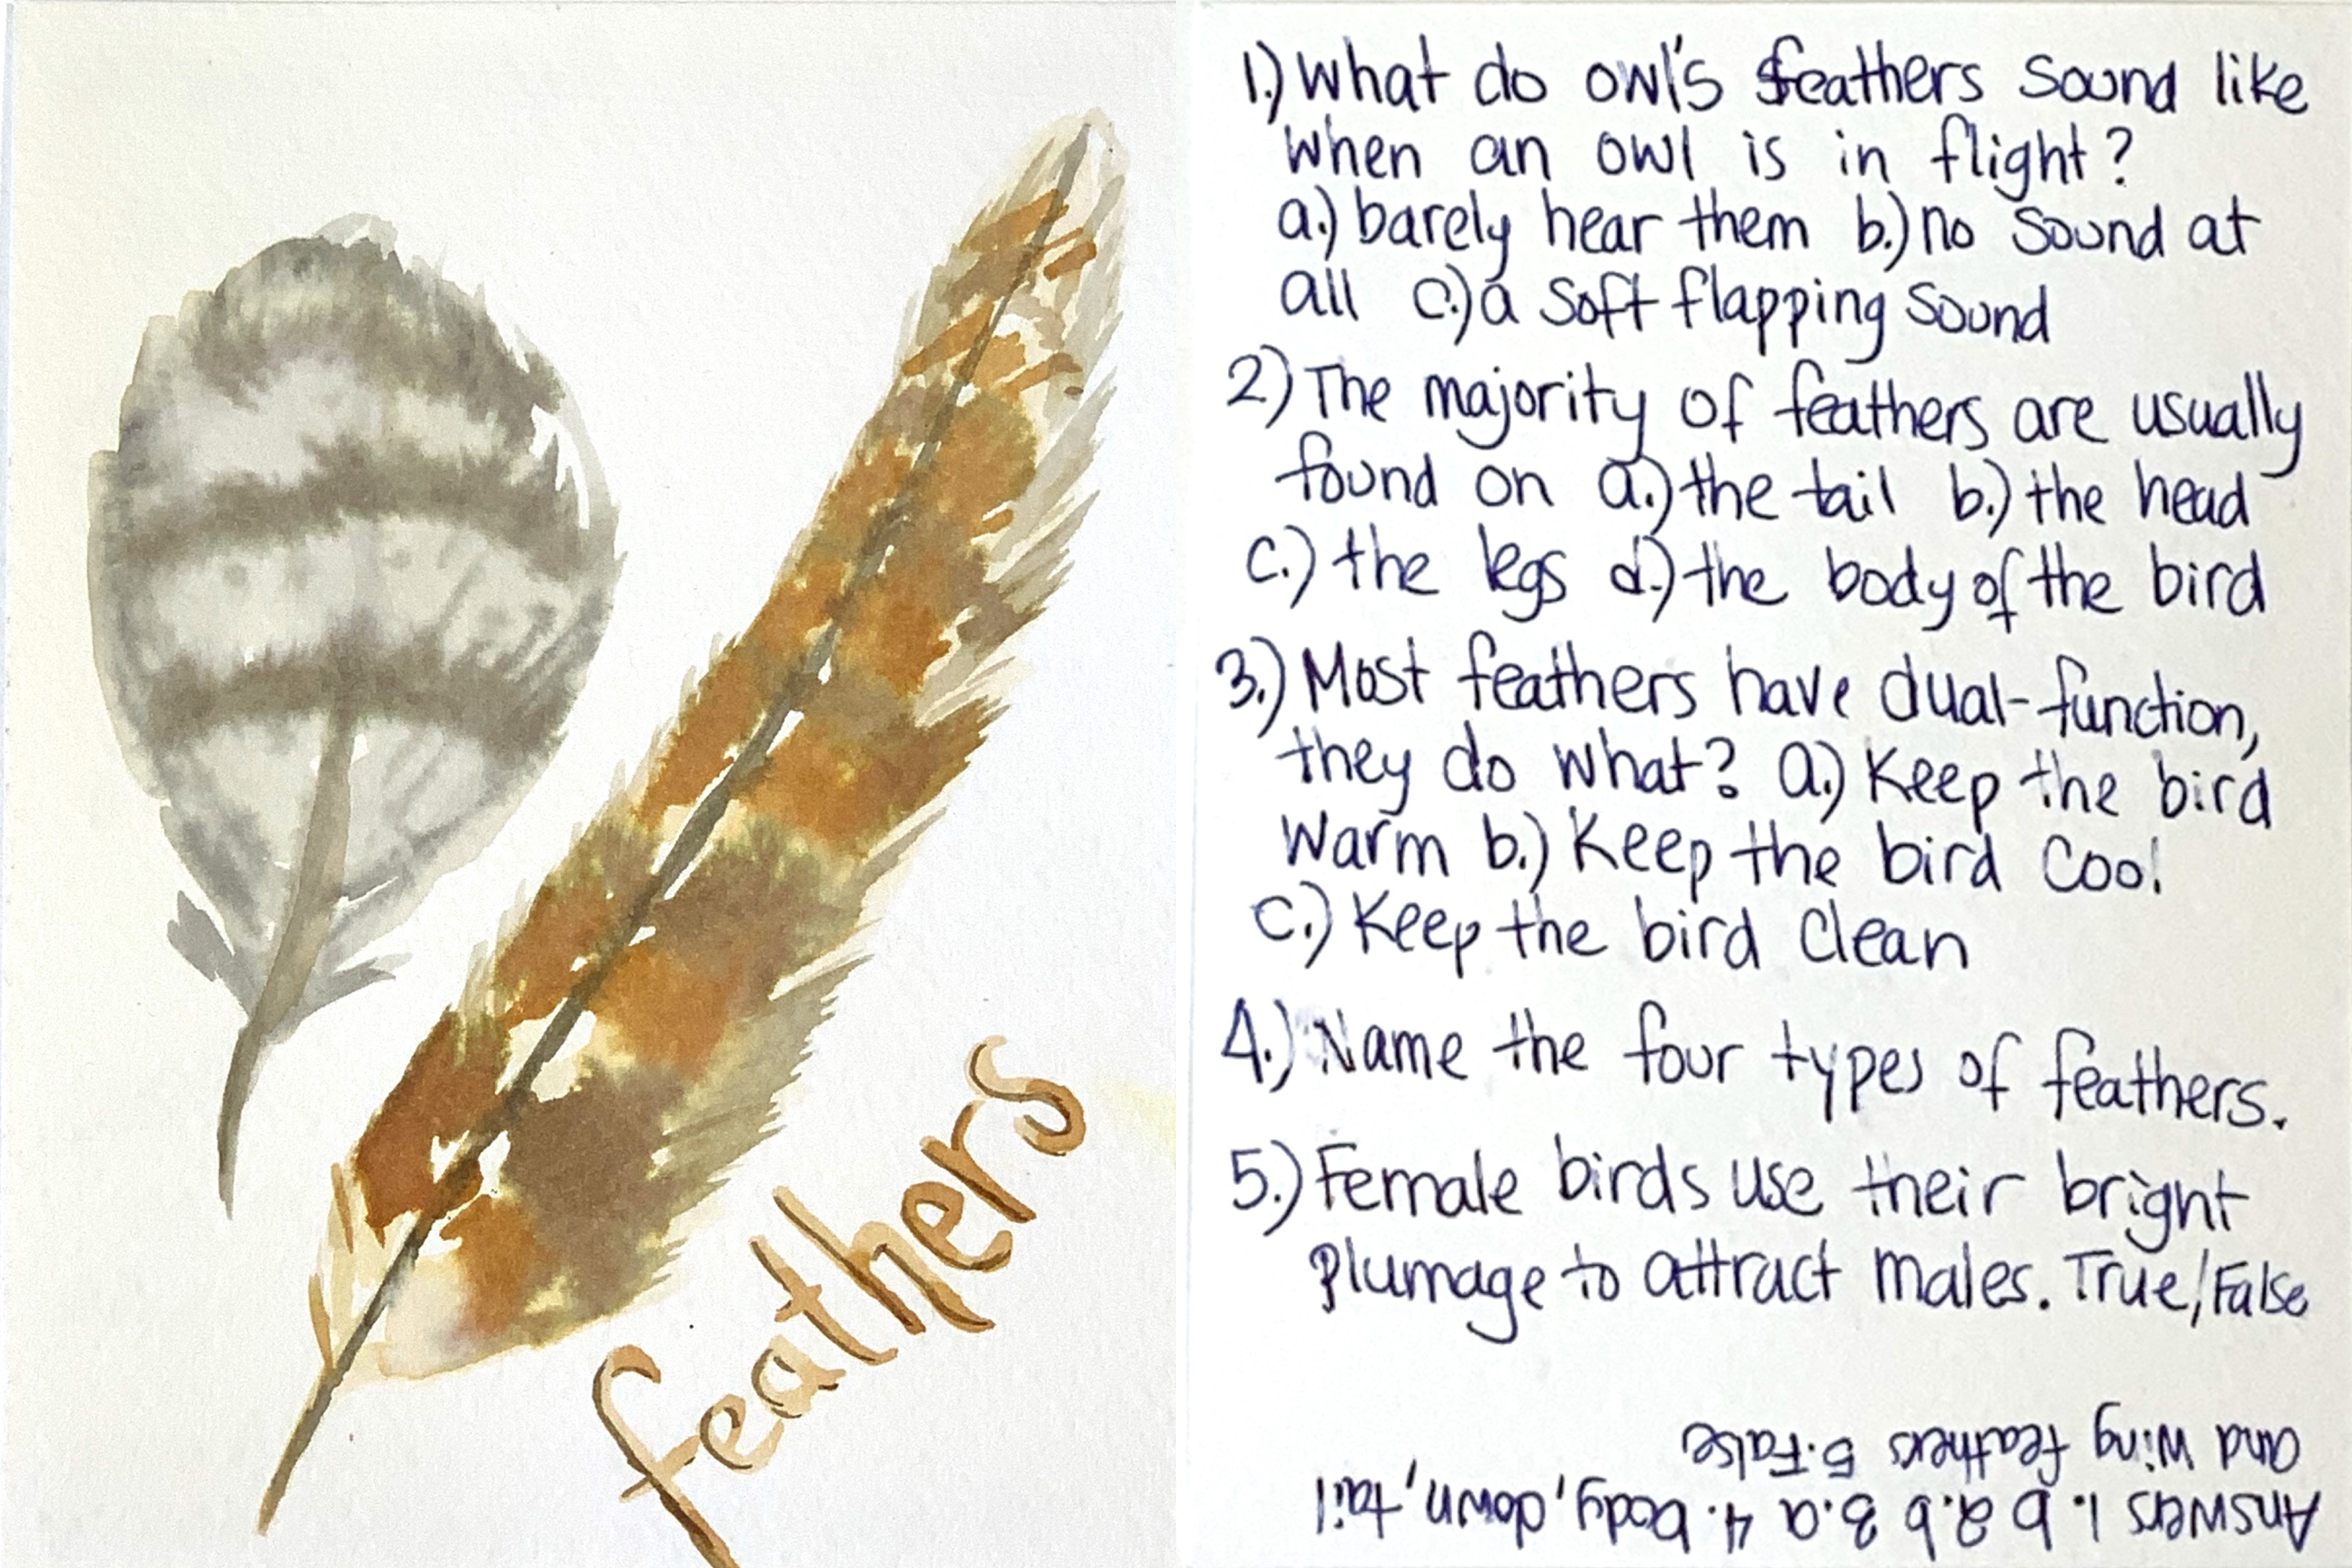 feathers
1.) What do owl's feathers sound like
when an owl is in flight?
a.) barely hear them b.) no sound at
all c.) a soft flapping sound
2.) The majority of feathers are usually
found on a.) the tail b.) the head
c.) the legs d.) the body of the bird
3.) Most feathers have dual-function,
they do what? a.) Keep the bird
warm b.) Keep the bird cool
c.) Keep the bird clean
4.) Name the four types of feathers.
5.) Female birds use their bright
plumage to attract males. True/False
Answers 1. b 2. b 3. a 4. body, down, tail
and wing feathers 5. False